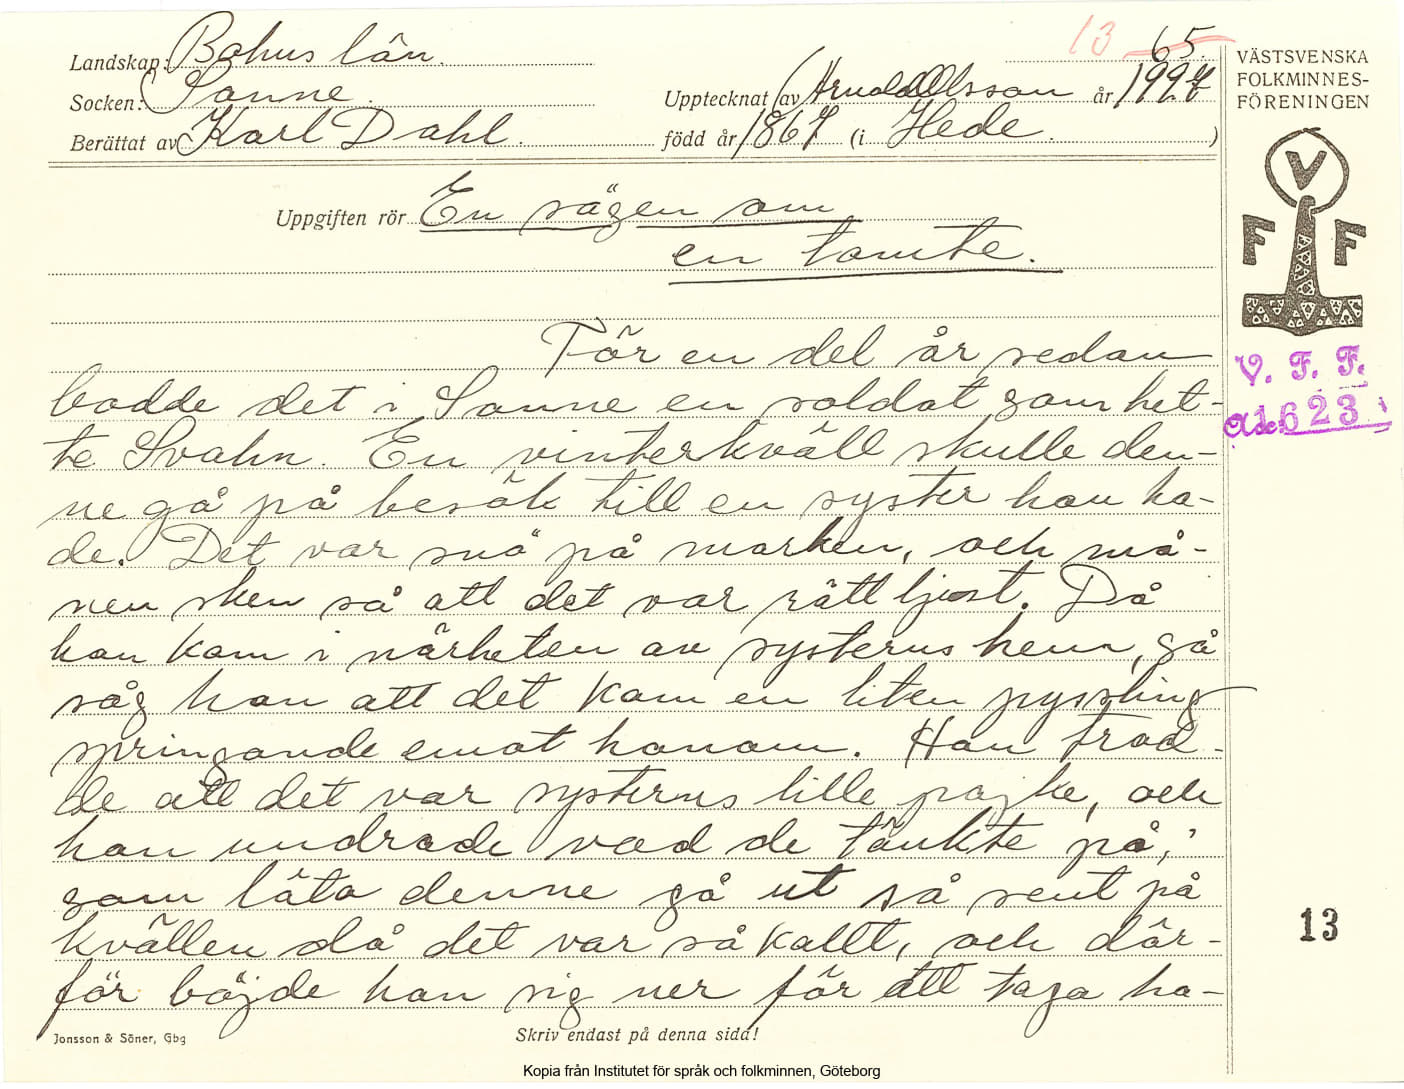 13 65.
Landskap: Bohus län.
VÄSTSVENSKA
FOLKMINNES-
FÖRENINGEN
Socken: Sanne.
Upptecknat av Arnold Olsson år 1927
Berättat av Karl Dahl.
född år 1867 (i Hede.)
V
F F
Uppgiften rör En sägen om
en tomte.
För en del år sedan
bodde det i Sanne en soldat som het-
te Svahn. En vinterkväll skulle den-
ne gå på besök till en syster han ha-
de. Det var snö på marken, och må-
nen sken så att det var rätt ljust. Då
han kom i närheten av systerns hem, så
såg han att det kom en liten pyssling
springande emot honom. Han trod-
de att det var systerns lille pojke, och
han undrade vad de tänkte på,
som läto denne gå ut så sent på
kvällen då det var så kallt, och där-
för böjde han sig ner för att taga ha-
V. F. F.
1623
13
Jonsson & Söner, Gbg
Skriv endast på denna sida!
Kopia från Institutet för språk och folkminnen, Göteborg